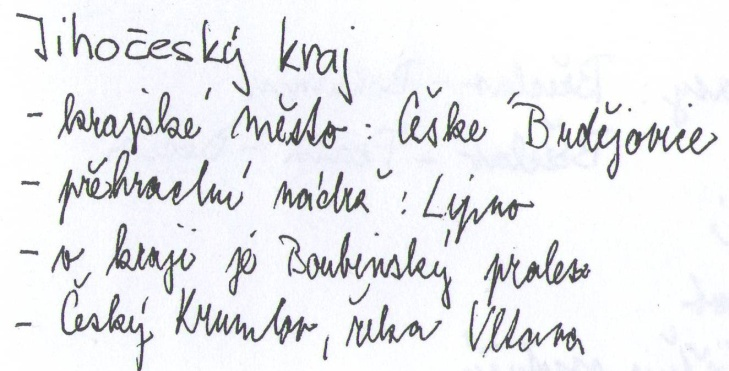 Jihočeský kraj
- krajské město: České Budějovice
- přehradní nádrž: Lipno
- v kraji je Boubínský prales
- Český Krumlov, řeka Vltava